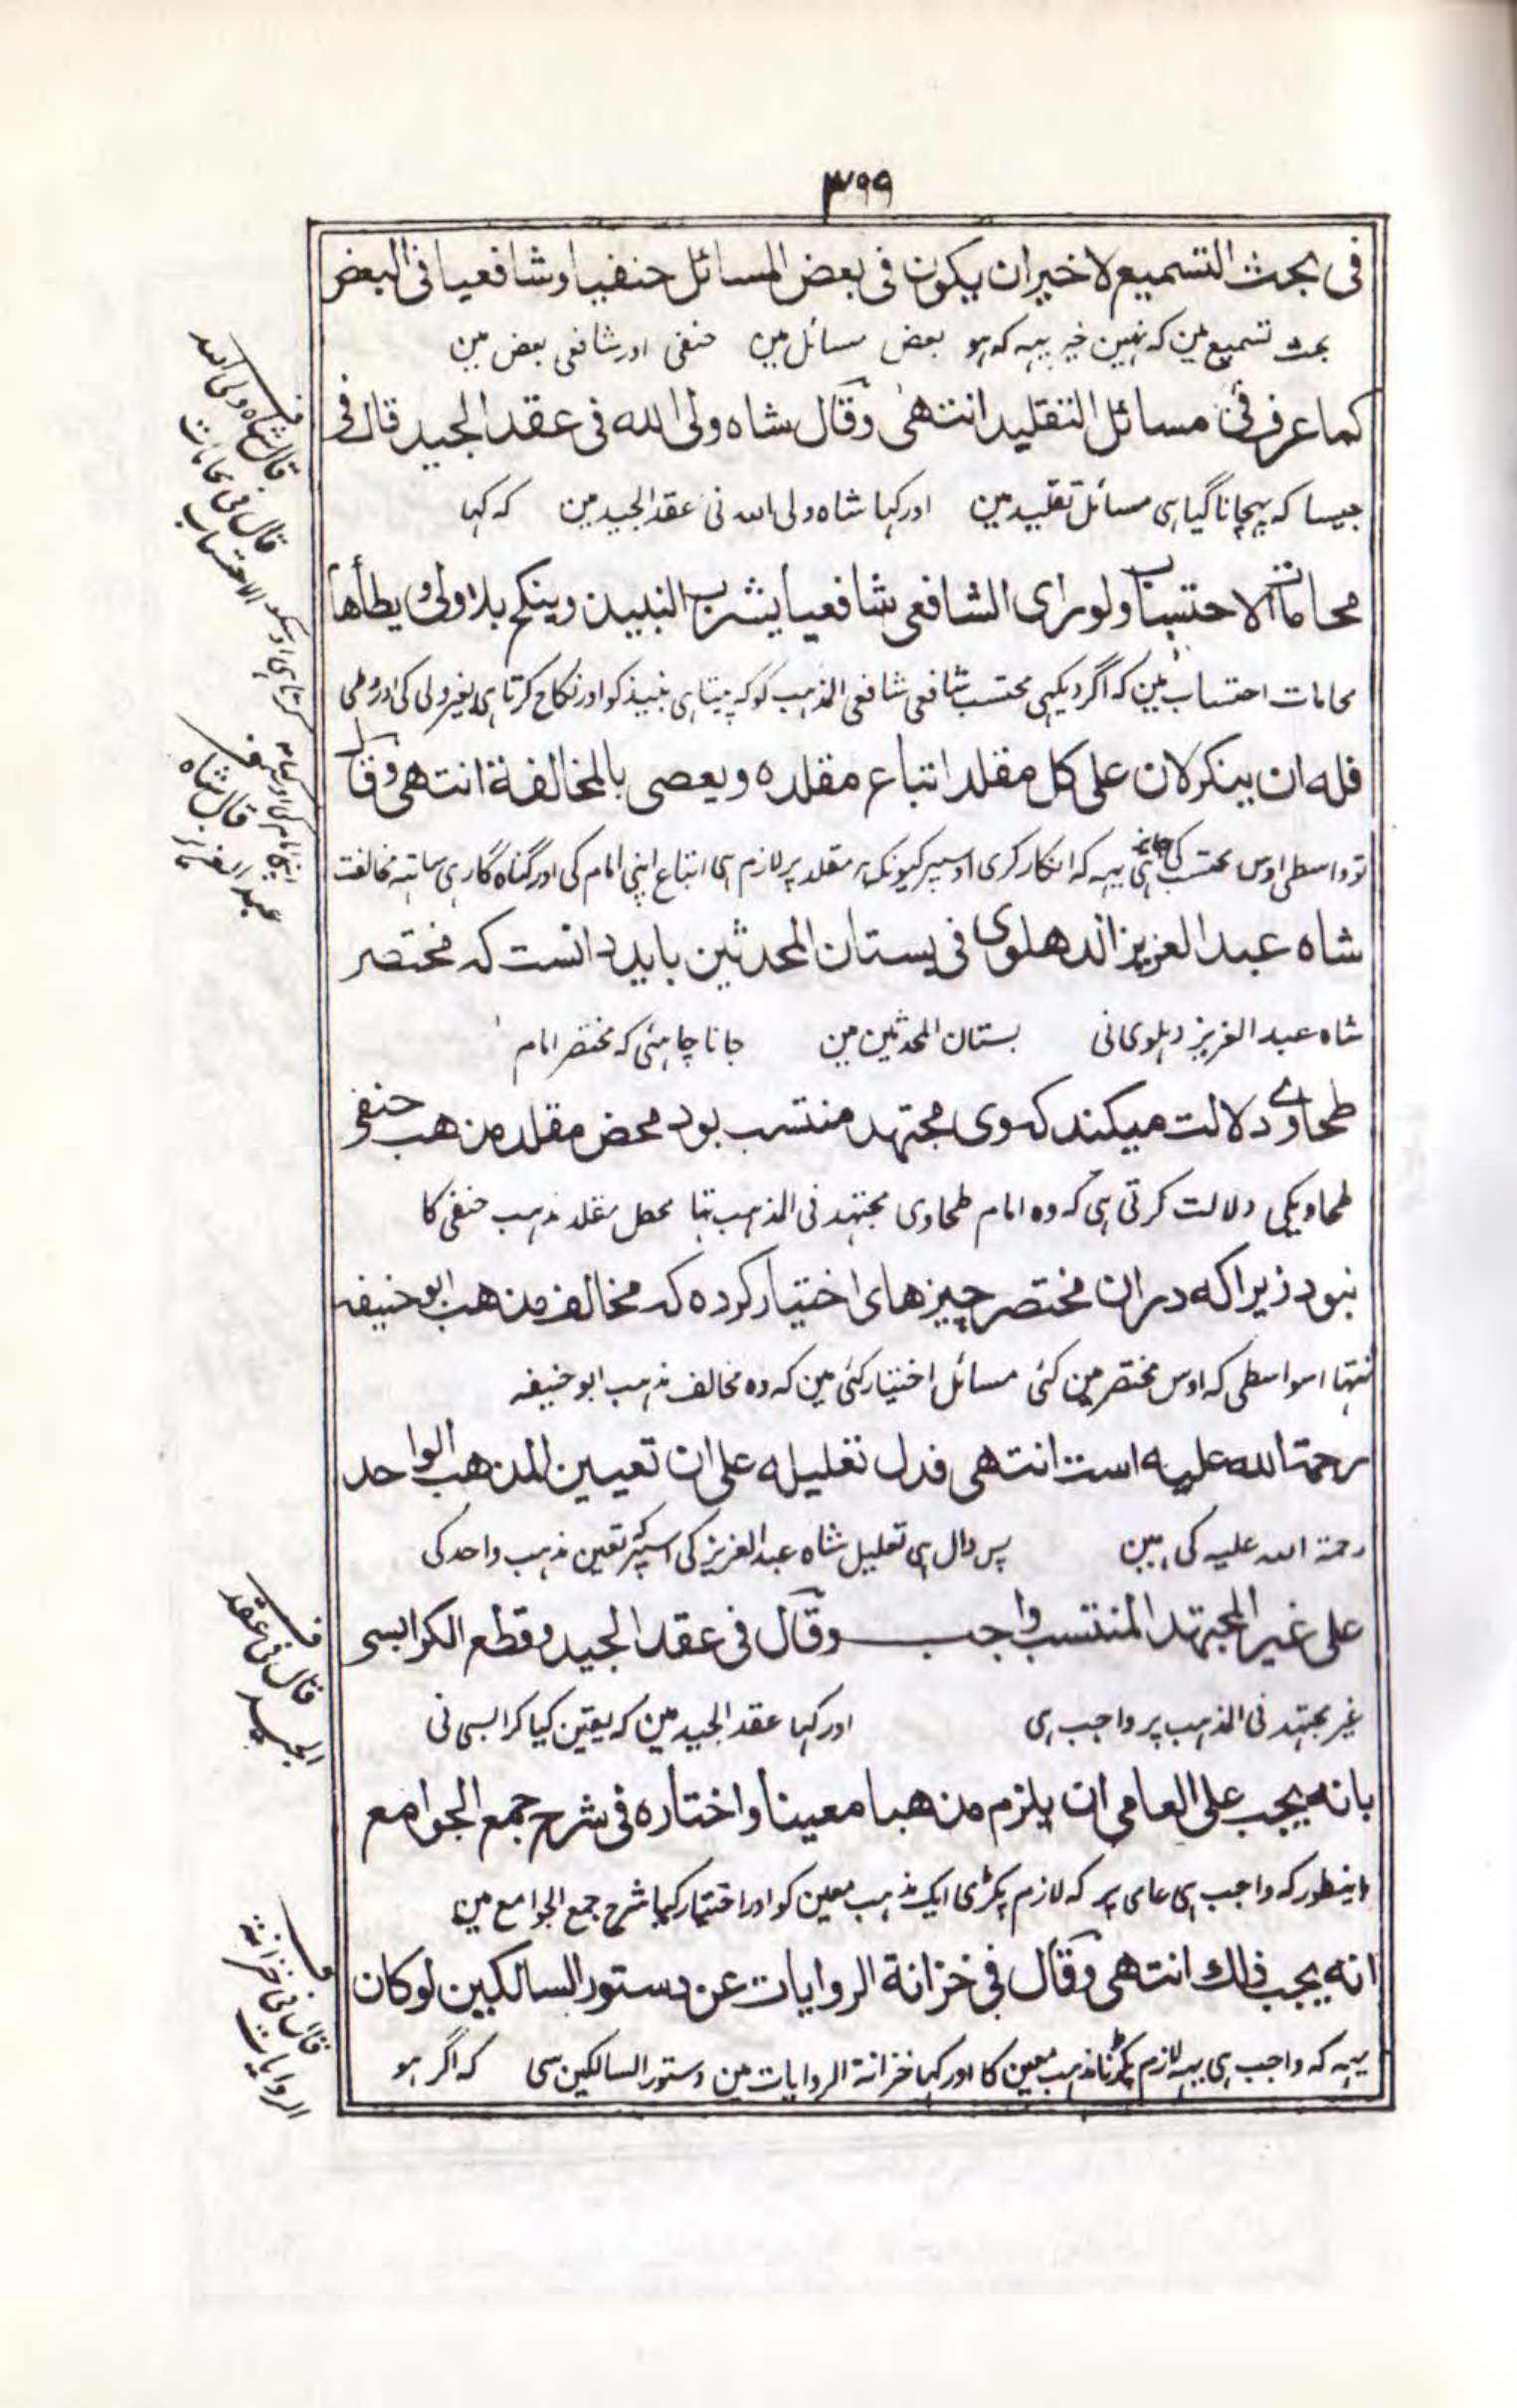 ٣٩٩
فی بحث التسمیع لاخیر ان یکون فی بعض المسائل حنفیا وشافعیا فی البعض
بحث تسمیع مین کہ نہین خیر یہہ کہ ہو بعض مسائل مین حنفی اور شافعی بعض مین
کما عرف فی مسائل التقلید انتهی وقال شاه ولی الله فی عقد الجید قال فی
جیسا کہ پہچانا گیا ہی مسائل تقلید مین اور کہا شاہ ولی اللہ نی عقد الجید مین کہ کہا
محامات الاحتساب ولو رای الشافعی شافعیا یشرب النبیذ وینکح بلا ولی ویطأها
محامات احتساب مین کہ اگر دیکہی محتسب شافعی شافعی المذہب کو کہ پیتا ہی نبیذ کو اور نکاح کرتا ہی بغیر ولی کی اور وطی
فله ان ینکر لان علی کل مقلد اتباع مقلده ویعصی بالمخالفة انتهی وقال
تو واسطی اوس محتسب کی جائز ہی یہہ کہ انکار کری اوسپر کیونکہ مقلد پر لازم ہی اتباع اپنی امام کی اور گناہ گار ہی ساتہہ مخالفت
شاه عبد العزیز الدهلوی فی بستان المحدثین باید دانست که مختصر
شاہ عبد العزیز دہلوی نی بستان المحدثین مین جانا چاہئی کہ مختصر امام
طحاوی دلالت میکند که وی مجتهد منتسب بود محض مقلد مذهب حنفی
طحاویکی دلالت کرتی ہی کہ وہ امام طحاوی مجتہد فی المذہب تہا محض مقلد مذہب حنفی کا
نبود زیرا که دران مختصر چیزهای اختیار کرده که مخالف مذهب ابو حنیفه
نتہا اسواسطی کہ اوس مختصر مین کئی مسائل اختیار کئی مین کہ وہ مخالف مذہب ابو حنیفہ
رحمة الله علیه است انتهی فدل تعلیله علی ان تعیین المذهب الواحد
رحمۃ اللہ علیہ کی ہین پس دال ہی تعلیل شاہ عبد العزیز کی اسپر کہ تعین مذہب واحد کی
علی غیر المجتهد المنتسب واجب وقال فی عقد الجید وقطع الکرابسی
غیر مجتہد فی المذہب پر واجب ہی اور کہا عقد الجید مین کہ یقین کیا کرابسی نی
بانه یجب علی العامی ان یلزم مذهبا معینا واختاره فی شرح جمع الجوامع
باینطور کہ واجب ہی عامی پر کہ لازم پکڑی ایک مذہب معین کو اور اختیار کیا شرح جمع الجوامع مین
انه یجب ذلك انتهی وقال فی خزانة الروایات عن دستور السالکین لو کان
یہہ کہ واجب ہی یہہ لازم پکڑنا مذہب معین کا اور کہا خزانۃ الروایات مین دستور السالکین سی کہ اگر ہو
قال شاہ ولی اللہ
قال فی محامات
الاحتساب
قال شاہ
عبد العزیز
قال فی عقد
الجید
قال فی خزانۃ
الروایات